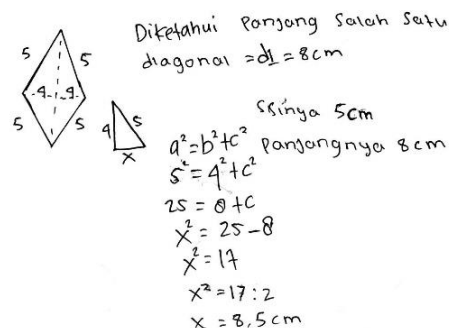 Diketahui Panjang Salah Satu
diagonal = d1 = 8cm
5 5
4 4
5 5
4 5
x
SSinya 5cm
Panjangnya 8cm
a² = b² + c²
5² = 4² + c²
25 = 8 + c
x² = 25 - 8
x² = 17
x² = 17 : 2
x = 8,5 cm